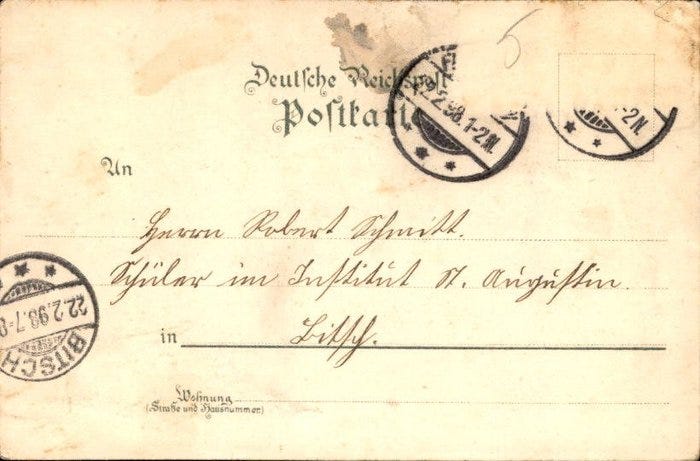 5
Deutsche Reichspost
Postkarte
22.2.98.1-2N.
1-2N.
An
Herrn Robert Schmitt.
Schüler im Institut St. Augustin
in Bitsch.
22.2.98.7-8
BITSCH
Wohnung
(Straße und Hausnummer)